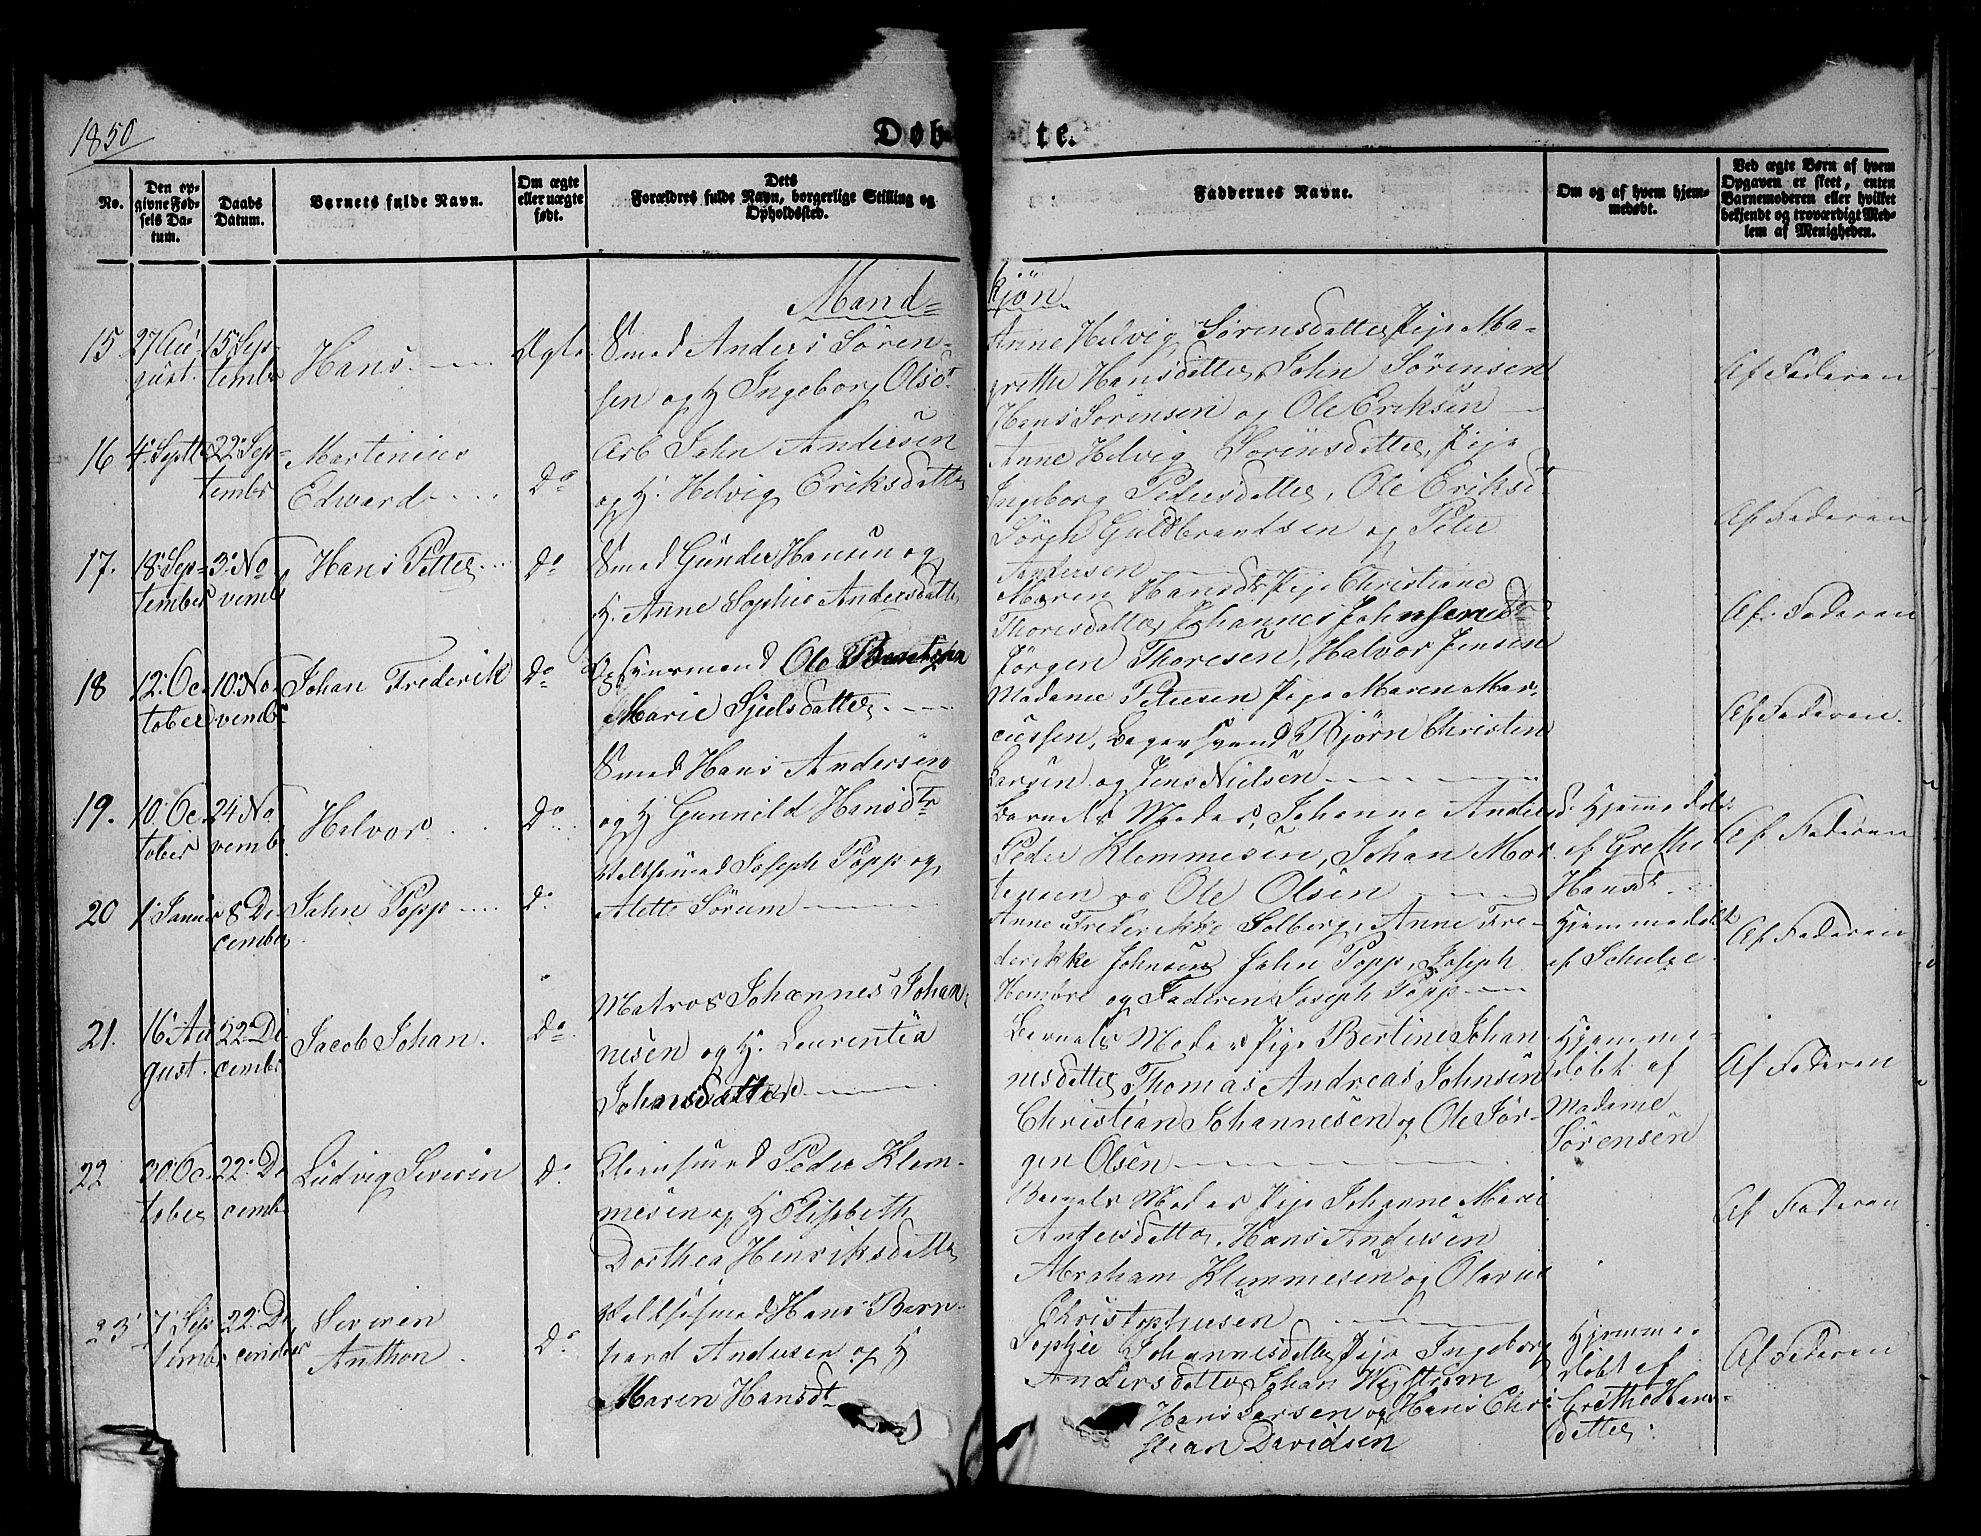 1850
Døbte.
No.
Den op-
givne Fød-
sels Da-
tum.
Daabs
Datum.
Barnets fulde Navn.
Om ægte
eller uægte
født.
Dets
Forældres fulde Navn, borgerlige Stilling og
Opholdssted.
Faddernes Navne.
Om og af hvem hjem-
medøbt.
Ved ægte Børn af hvem
Opgaven er skeet, enten
Barnemoderen eller hvilket
bekjendt og troværdigt Med-
lem af Menigheden.
Mand=
kjøn
15
27 Au-
gust.
15 Sep-
tember
Hans
Ægte
Smed Anders Sören-
sen og H Ingeborg Olsd
Anne Helvig Sörensdatter, Pige Ma-
grethe Hansdatter, John Sörensen
Hans Sörensen og Ole Eriksen
Af Faderen
16
4 Septb
22 Sep-
tember
Martinius
Edward
Do
Arb John Andersen
og H. Helvig Eriksdatter
Anne Helvig Sörensdatter, Pige
Ingeborg Pedersdatter, Ole Eriks
Sören Guldbrandsen og Peter
Andersen
Af Faderen
17.
18 Sep-
tember
3 No
vemb
Hans Petter
Do
Smed Gunder Hansen og
H. Anne Sophie Andersdatter
Maren Hansdtr, Pige Christiane
Thoresdatter, Johannes Johnsen
Jörgen Thoresen, Halvor Jensen
Af Faderen
18
12 Oc
tober
10 No
vemb
Johan Frederik
Do
Ole Berntsen
Marie Gjelsdatter
Madame Petersen, Pige Maren Mar-
cussen, Bagersvend Björn Christen
Larsen og Jens Nielsen
Af Faderen.
19.
10 Oc
tober
24 No
vemb
Halvor
Do
Smed Hans Andersen
og H Gunnild Hansdtr
Barnets Moder, Johanne Andersd.
Peder Klemmesen, Johan Mor
tensen og Ole Olsen
Hjemmedöbt
af Grethe
Hansdt
Af Faderen
20
8 De-
cember
John Popp
Do
Joseph Popp og
Alette Sörum
Anne Frederikke Solberg, Anne Fre-
derikke Johnsen, John Popp, Joseph
Hembre og Faderen Joseph Popp
Hjemmedöbt
af Schulze
Af Faderen
21.
16 Au
gust.
22 De
cemb
Jacob Johan.
Do
Matros Johannes Johan-
nesen og H. Laurentia
Johnsdatter
Barnets Moder, Pige Bertine Johan
nesdatter, Thomas Andreas Johnsen
Christian Johannesen og Ole Jör-
gen Olsen
Hjemme-
döbt af
Madame
Sörensen
Af Faderen
22
Oc
tober
22 De
cemb
Ludvig Severin
Do
Peder Klem-
mesen og H Elisabeth
Dorthea Henriksdatter
Barnets Moder, Pige Johanne Marie
Andersdatter, Hans Andersen
Abraham Klemmesen og Olavus
Christophersen
Af Faderen
23
7 Sep
temb
22 De
cember
Severin
Anthon
Do
Hans Bern-
hard Andersen og H
Maren Hansdt
Sophie Johannesdatter, Pige Ingeborg
Andersdatter, Johan
Hans Larsen og Hans Chri
stian Davidsen
Hjemme
döbt af
Grethe Hans-
datter.
Af Faderen